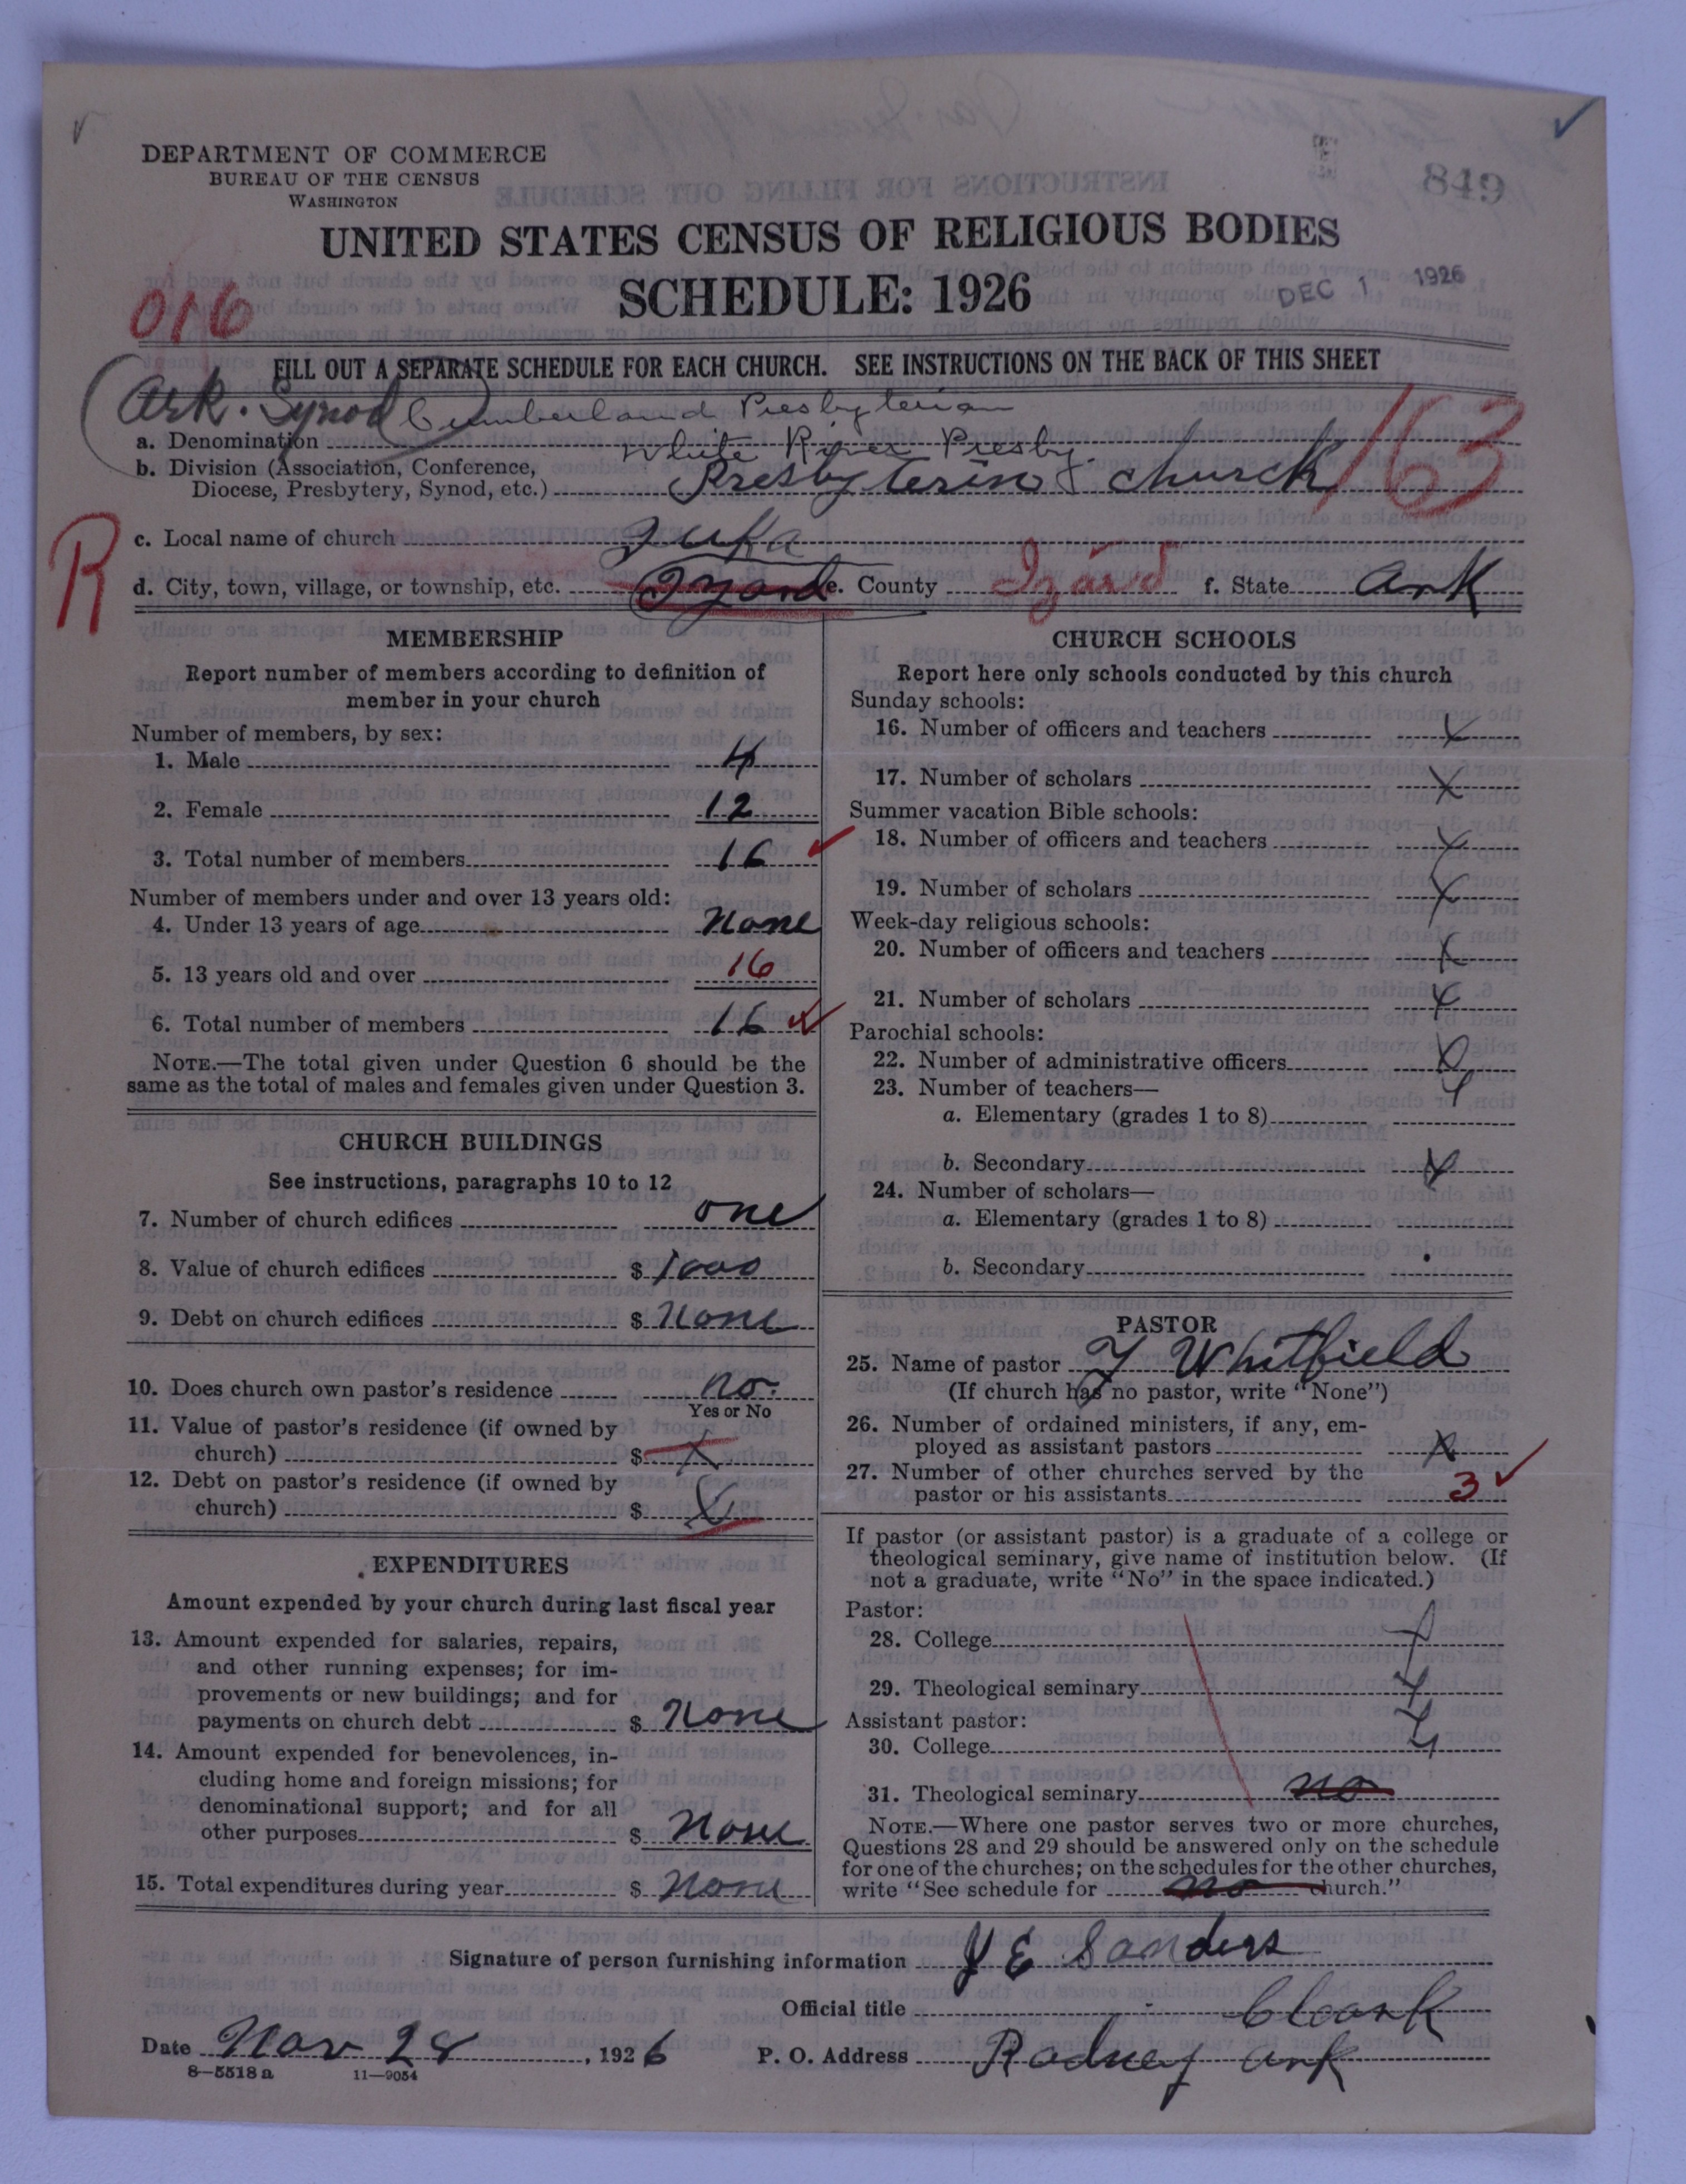 DEPARTMENT OF COMMERCE
BUREAU OF THE CENSUS
WASHINGTON
849
UNITED STATES CENSUS OF RELIGIOUS BODIES
SCHEDULE: 1926
DEC 1 1926
016
FILL OUT A SEPARATE SCHEDULE FOR EACH CHURCH. SEE INSTRUCTIONS ON THE BACK OF THIS SHEET
Ark. Synod
a. Denomination Cumberland Presbyterian
White River Presby.
b. Division (Association, Conference,
Diocese, Presbytery, Synod, etc.) Presbyterin church
163
R
c. Local name of church Iuka
d. City, town, village, or township, etc. Izard e. County Izard f. State Ark
MEMBERSHIP
Report number of members according to definition of
member in your church
Number of members, by sex:
1. Male 4
2. Female 12
3. Total number of members 16
Number of members under and over 13 years old:
4. Under 13 years of age None
5. 13 years old and over 16
6. Total number of members 16
NOTE.—The total given under Question 6 should be the
same as the total of males and females given under Question 3.
CHURCH BUILDINGS
See instructions, paragraphs 10 to 12
7. Number of church edifices one
8. Value of church edifices $ 1000
9. Debt on church edifices $ None
10. Does church own pastor's residence no.
Yes or No
11. Value of pastor's residence (if owned by
church) $ X
12. Debt on pastor's residence (if owned by
church) $ X
EXPENDITURES
Amount expended by your church during last fiscal year
13. Amount expended for salaries, repairs,
and other running expenses; for im-
provements or new buildings; and for
payments on church debt $ None
14. Amount expended for benevolences, in-
cluding home and foreign missions; for
denominational support; and for all
other purposes $ None
15. Total expenditures during year $ None
CHURCH SCHOOLS
Report here only schools conducted by this church
Sunday schools:
16. Number of officers and teachers X
17. Number of scholars X
Summer vacation Bible schools:
18. Number of officers and teachers X
19. Number of scholars X
Week-day religious schools:
20. Number of officers and teachers X
21. Number of scholars X
Parochial schools:
22. Number of administrative officers X
23. Number of teachers— X
a. Elementary (grades 1 to 8)
b. Secondary X
24. Number of scholars—
a. Elementary (grades 1 to 8)
b. Secondary
PASTOR
25. Name of pastor Whitfield
(If church has no pastor, write "None")
26. Number of ordained ministers, if any, em-
ployed as assistant pastors X
27. Number of other churches served by the
pastor or his assistants 3
If pastor (or assistant pastor) is a graduate of a college or
theological seminary, give name of institution below. (If
not a graduate, write "No" in the space indicated.)
Pastor:
28. College X
29. Theological seminary X
Assistant pastor:
30. College X
31. Theological seminary no
NOTE.—Where one pastor serves two or more churches,
Questions 28 and 29 should be answered only on the schedule
for one of the churches; on the schedules for the other churches,
write "See schedule for no church."
Signature of person furnishing information J E Sanders
Official title cleark
Date Nov 28, 1926 P. O. Address Rodney Ark
8—5518a 11—9054